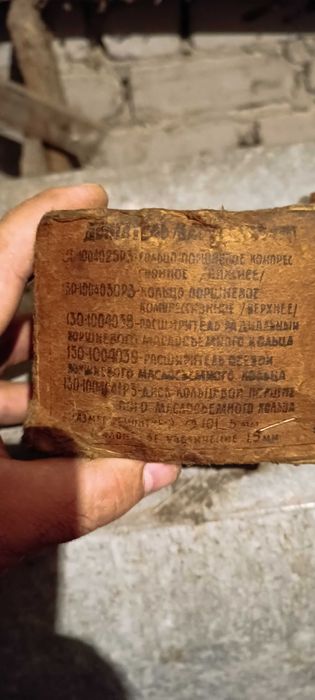 130-1004025Р3-КОЛЬЦО ПОРШНЕВОЕ КОМПРЕС
СИОННОЕ /НИЖНЕЕ/
130-1004030Р3-КОЛЬЦО ПОРШНЕВОЕ
КОМПРЕССИОННОЕ /ВЕРХНЕЕ/
130-1004038-РАСШИРИТЕЛЬ РАДИАЛЬНЫЙ
ПОРШНЕВОГО МАСЛОСЪЕМНОГО КОЛЬЦА
130-1004039-РАСШИРИТЕЛЬ ОСЕВОЙ
ПОРШНЕВОГО МАСЛОСЪЕМНОГО КОЛЬЦА
ДИСК КОЛЬЦЕВОЙ ПОРШНЕ
ВОГО МАСЛОСЪЕМНОГО КОЛЬЦА
РАЗМЕР 101,5 мм
УВЕЛИЧЕНИЕ 1,5 мм